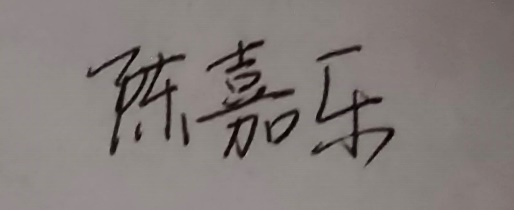 陈嘉乐